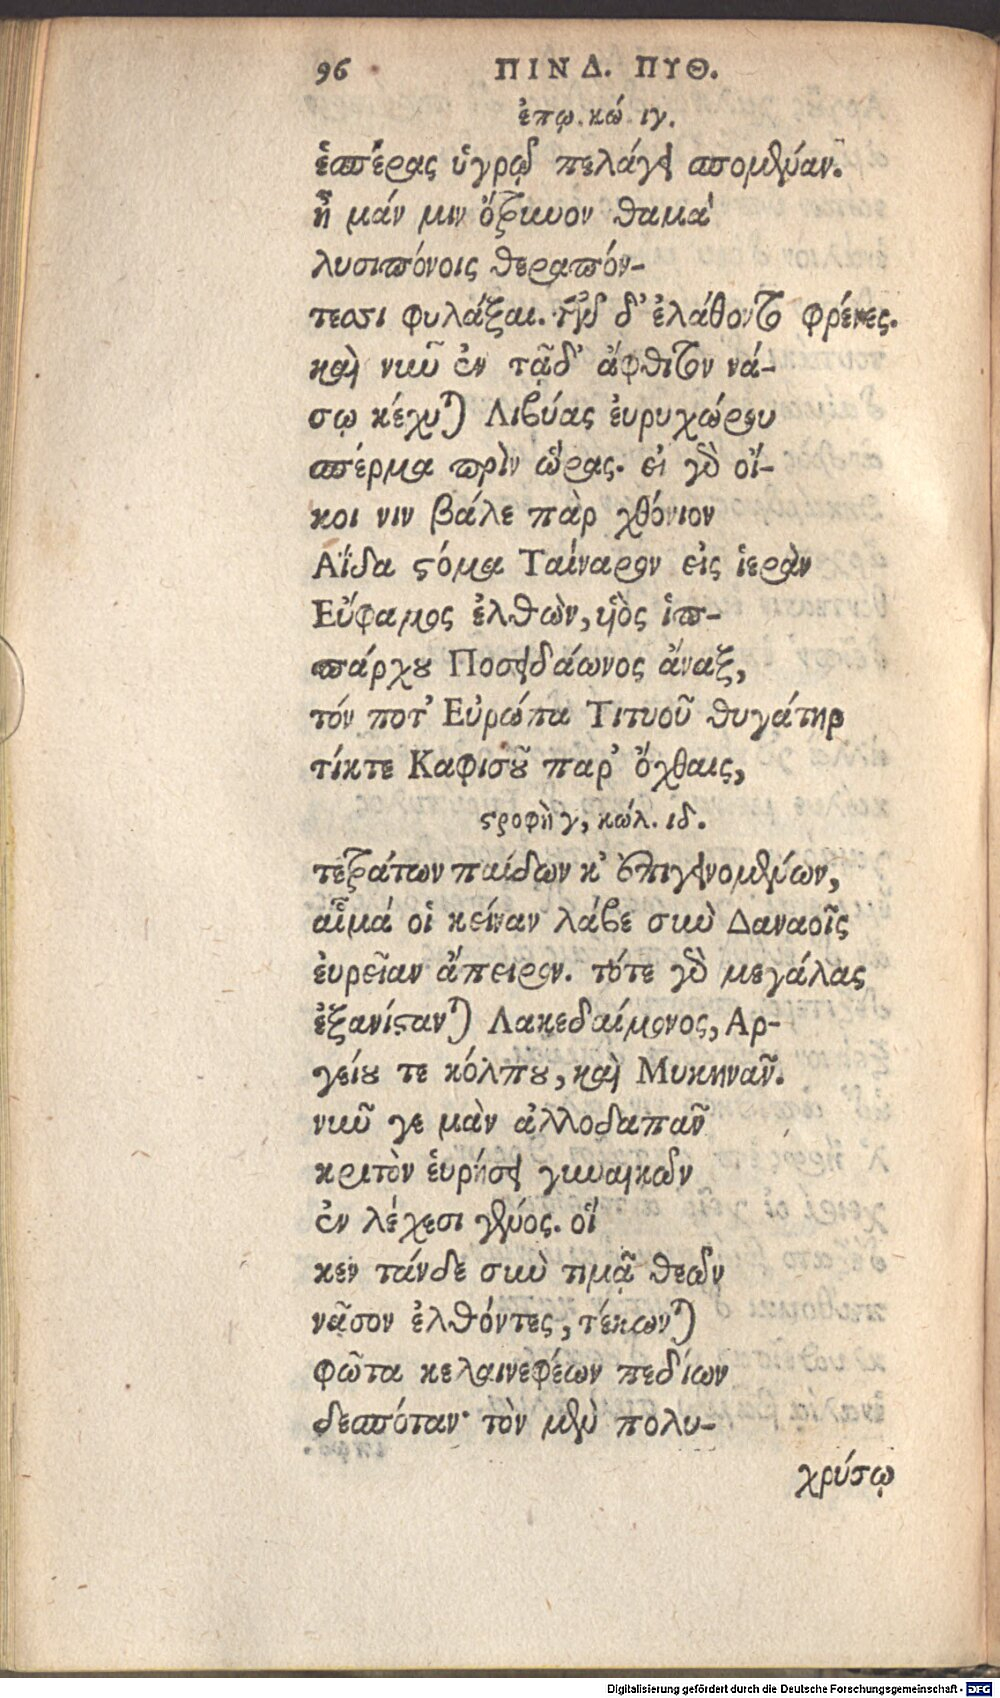 96 ΠΙΝΔ. ΠΥΘ.
ἐπῳ. κώ. ιγ.
ἑσπέρας ὑγρῷ πελάγει σπομέναν.
ἦ μάν μιν ὄτρυνον θαμὰ
λυσιπόνοις θεραπόν-
τεσσι φυλάξαι. τῶν δ' ἐλάθοντο φρένες.
καὶ νῦν ἐν τᾷδ' ἄφθιτον νά-
σῳ κέχυται Λιβύας ἐυρυχώρου
σπέρμα πρὶν ὥρας. εἰ γὰρ οἴ-
κοι νιν βάλε πὰρ χθόνιον
Αΐδα στόμα Ταίναρον εἰς ἱερὰν
Εὔφαμος ἐλθὼν, υἱὸς ἱπ-
πάρχου Ποσειδάωνος ἄναξ,
τόν ποτ' Εὐρώπα Τιτυοῦ θυγάτηρ
τίκτε Καφισοῦ παρ' ὄχθαις,
στροφὴ γ, κώλ. ιδ.
τετράτων παίδων κ' ἐπιγεινομένων,
αἷμά οἱ κείναν λάβε σὺν Δαναοῖς
ἐυρεῖαν ἄπειρον. τότε γὰρ μεγάλας
ἐξανίστανται Λακεδαίμονος, Αρ-
γείου τε κόλπου, καὶ Μυκηνᾶν.
νῦν γε μὰν ἀλλοδαπᾶν
κριτὸν ἑυρήσει γυναικῶν
ἐν λέχεσι γένος. οἵ
κεν τάνδε σὺν τιμᾷ θεῶν
νᾶσον ἐλθόντες, τέκωνται
φῶτα κελαινεφέων πεδίων
δεσπόταν· τὸν μὲν πολυ-
χρύσῳ
Digitalisierung gefördert durch die Deutsche Forschungsgemeinschaft - DFG